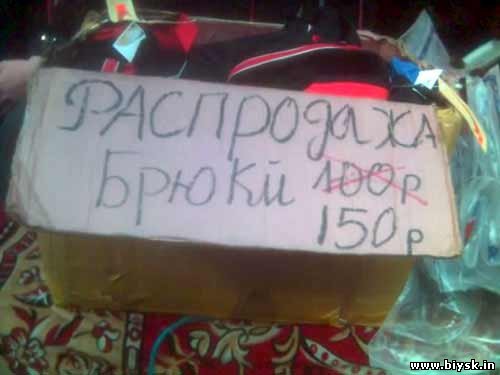 РАСПРОДАЖА
БРЮКИ 100р
150р
www.biysk.in